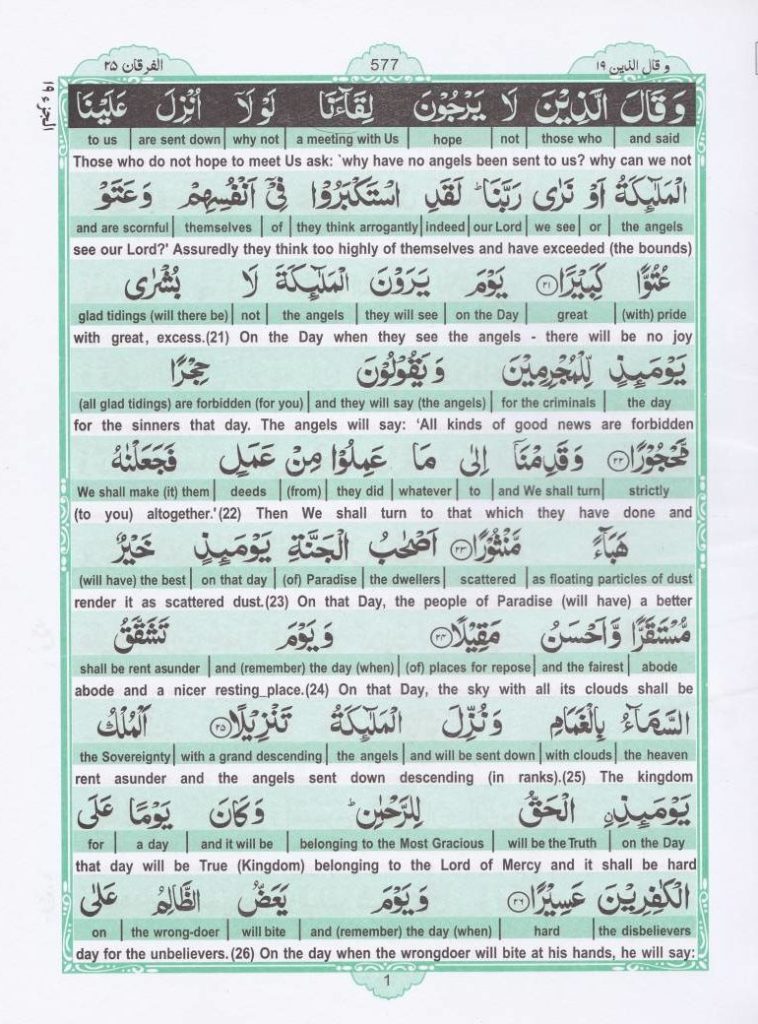 الفرقان ٢٥
577
وقال الذين ١٩
الجزء ١٩
وَقَالَ الَّذِيْنَ لَا يَرْجُوْنَ لِقَآءَنَا لَوْلَآ اُنْزِلَ عَلَيْنَا
to us | are sent down | why not | a meeting with Us | hope | not | those who | and said
Those who do not hope to meet Us ask: `why have no angels been sent to us? why can we not
الْمَلٰٓئِكَةُ اَوْ نَرٰى رَبَّنَا ؕ لَقَدِ اسْتَكْبَرُوْا فِيْٓ اَنْفُسِهِمْ وَعَتَوْ
and are scornful | themselves | of | they think arrogantly | indeed | our Lord | we see | or | the angels
see our Lord?' Assuredly they think too highly of themselves and have exceeded (the bounds)
عُتُوًّا كَبِيْرًا ٢١ يَوْمَ يَرَوْنَ الْمَلٰٓئِكَةَ لَا بُشْرٰى
glad tidings (will there be) | not | the angels | they will see | on the Day | great | (with) pride
with great, excess.(21) On the Day when they see the angels - there will be no joy
يَوْمَئِذٍ لِّلْمُجْرِمِيْنَ وَيَقُوْلُوْنَ حِجْرًا
(all glad tidings) are forbidden (for you) | and they will say (the angels) | for the criminals | the day
for the sinners that day. The angels will say: ‘All kinds of good news are forbidden
مَّحْجُوْرًا ٢٢ وَقَدِمْنَآ اِلٰى مَا عَمِلُوْا مِنْ عَمَلٍ فَجَعَلْنٰهُ
We shall make (it) them | deeds | (from) | they did | whatever | to | and We shall turn | strictly
(to you) altogether.'(22) Then We shall turn to that which they have done and
هَبَآءً مَّنْثُوْرًا ٢٣ اَصْحٰبُ الْجَنَّةِ يَوْمَئِذٍ خَيْرٌ
(will have) the best | on that day | (of) Paradise | the dwellers | scattered | as floating particles of dust
render it as scattered dust.(23) On that Day, the people of Paradise (will have) a better
مُّسْتَقَرًّا وَّاَحْسَنُ مَقِيْلًا ٢٤ وَيَوْمَ تَشَقَّقُ
shall be rent asunder | and (remember) the day (when) | (of) places for repose | and the fairest | abode
abode and a nicer resting_place.(24) On that Day, the sky with all its clouds shall be
السَّمَآءُ بِالْغَمَامِ وَنُزِّلَ الْمَلٰٓئِكَةُ تَنْزِيْلًا ٢٥ اَلْمُلْكُ
the Sovereignty | with a grand descending | the angels | and will be sent down | with clouds | the heaven
rent asunder and the angels sent down descending (in ranks).(25) The kingdom
يَوْمَئِذِ ِۨالْحَقُّ لِلرَّحْمٰنِ ؕ وَكَانَ يَوْمًا عَلَى
for | a day | and it will be | belonging to the Most Gracious | will be the Truth | on the Day
that day will be True (Kingdom) belonging to the Lord of Mercy and it shall be hard
الْكٰفِرِيْنَ عَسِيْرًا ٢٦ وَيَوْمَ يَعَضُّ الظَّالِمُ عَلٰى
on | the wrong-doer | will bite | and (remember) the day (when) | hard | the disbelievers
day for the unbelievers.(26) On the day when the wrongdoer will bite at his hands, he will say:
1